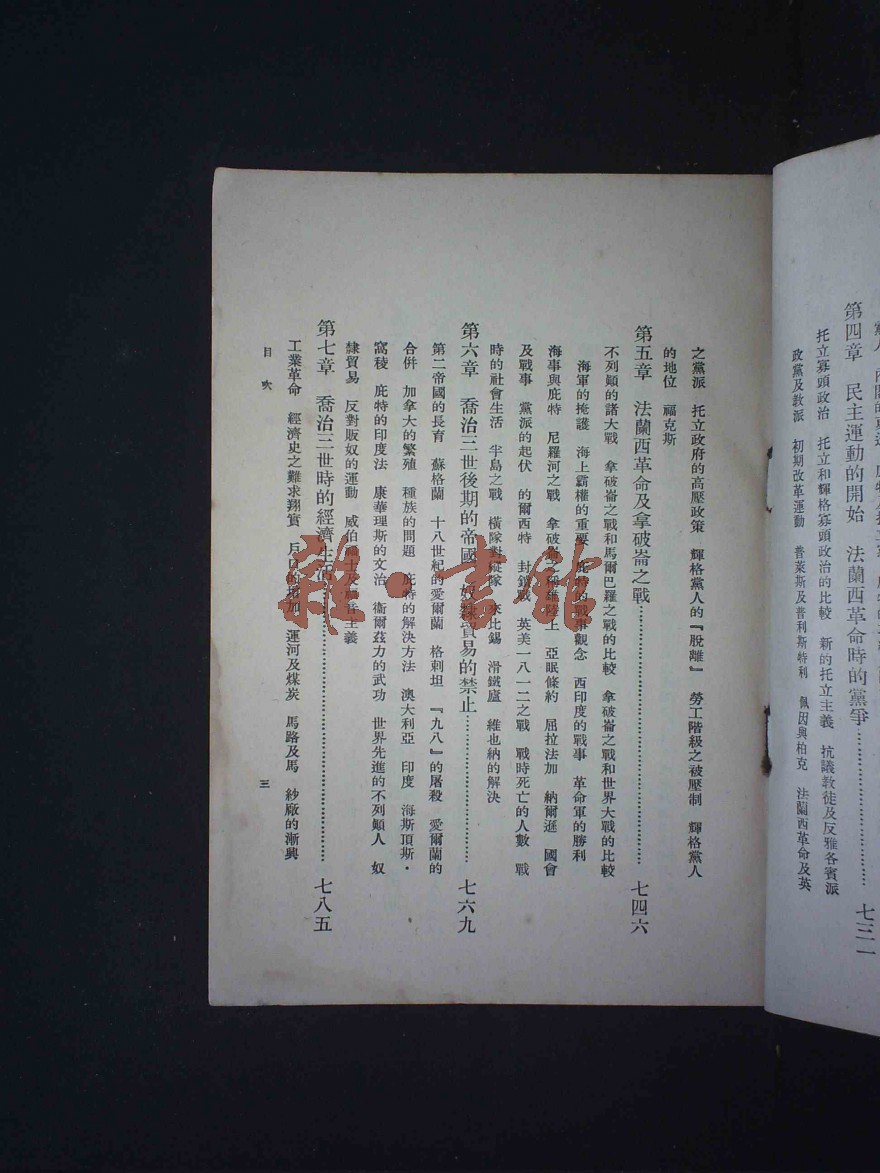 第四章　民主運動的開始　法蘭西革命時的黨爭……七三一
托立寡頭政治　托立和輝格寡頭政治的比較　新的托立主義　抗議教徒及反雅各賓派
政黨及教派　初期改革運動　普萊斯及普利斯特利　佩因與柏克　法蘭西革命及英
之黨派　托立政府的高壓政策　輝格黨人的『脫離』　勞工階級之被壓制　輝格黨人
的地位　福克斯
第五章　法蘭西革命及拿破崙之戰……七四六
不列顛的諸大戰　拿破崙之戰和馬爾巴羅之戰的比較　拿破崙之戰和世界大戰的比較
海軍的掩護　海上霸權的重要　庇特的戰事觀念　西印度的戰事　革命軍的勝利
海事與庇特　尼羅河之戰　拿破崙之稱雄陸上　亞眠條約　屈拉法加　納爾遜　國會
及戰事　黨派的起伏　的爾西特　封鎖戰　英美一八一二之戰　戰時死亡的人數　戰
時的社會生活　半島之戰　橫隊對縱隊　來比錫　滑鐵廬　維也納的解決
第六章　喬治三世後期的帝國　奴隸貿易的禁止……七六九
第二帝國的長育　蘇格蘭　十八世紀的愛爾蘭　格剌坦　『九八』的屠殺　愛爾蘭的
合併　加拿大的繁殖　種族的問題　庇特的解決方法　澳大利亞　印度　海斯頂斯・
窩稜　庇特的印度法　康華理斯的文治　衞爾茲力的武功　世界先進的不列顛人　奴
隸貿易　反對販奴的運動　威伯福士及福音主義
第七章　喬治三世時的經濟生活……七八五
工業革命　經濟史之難求翔實　戶口的增加　運河及煤炭　馬路及馬　紗廠的漸興
目次
三
雜・書館